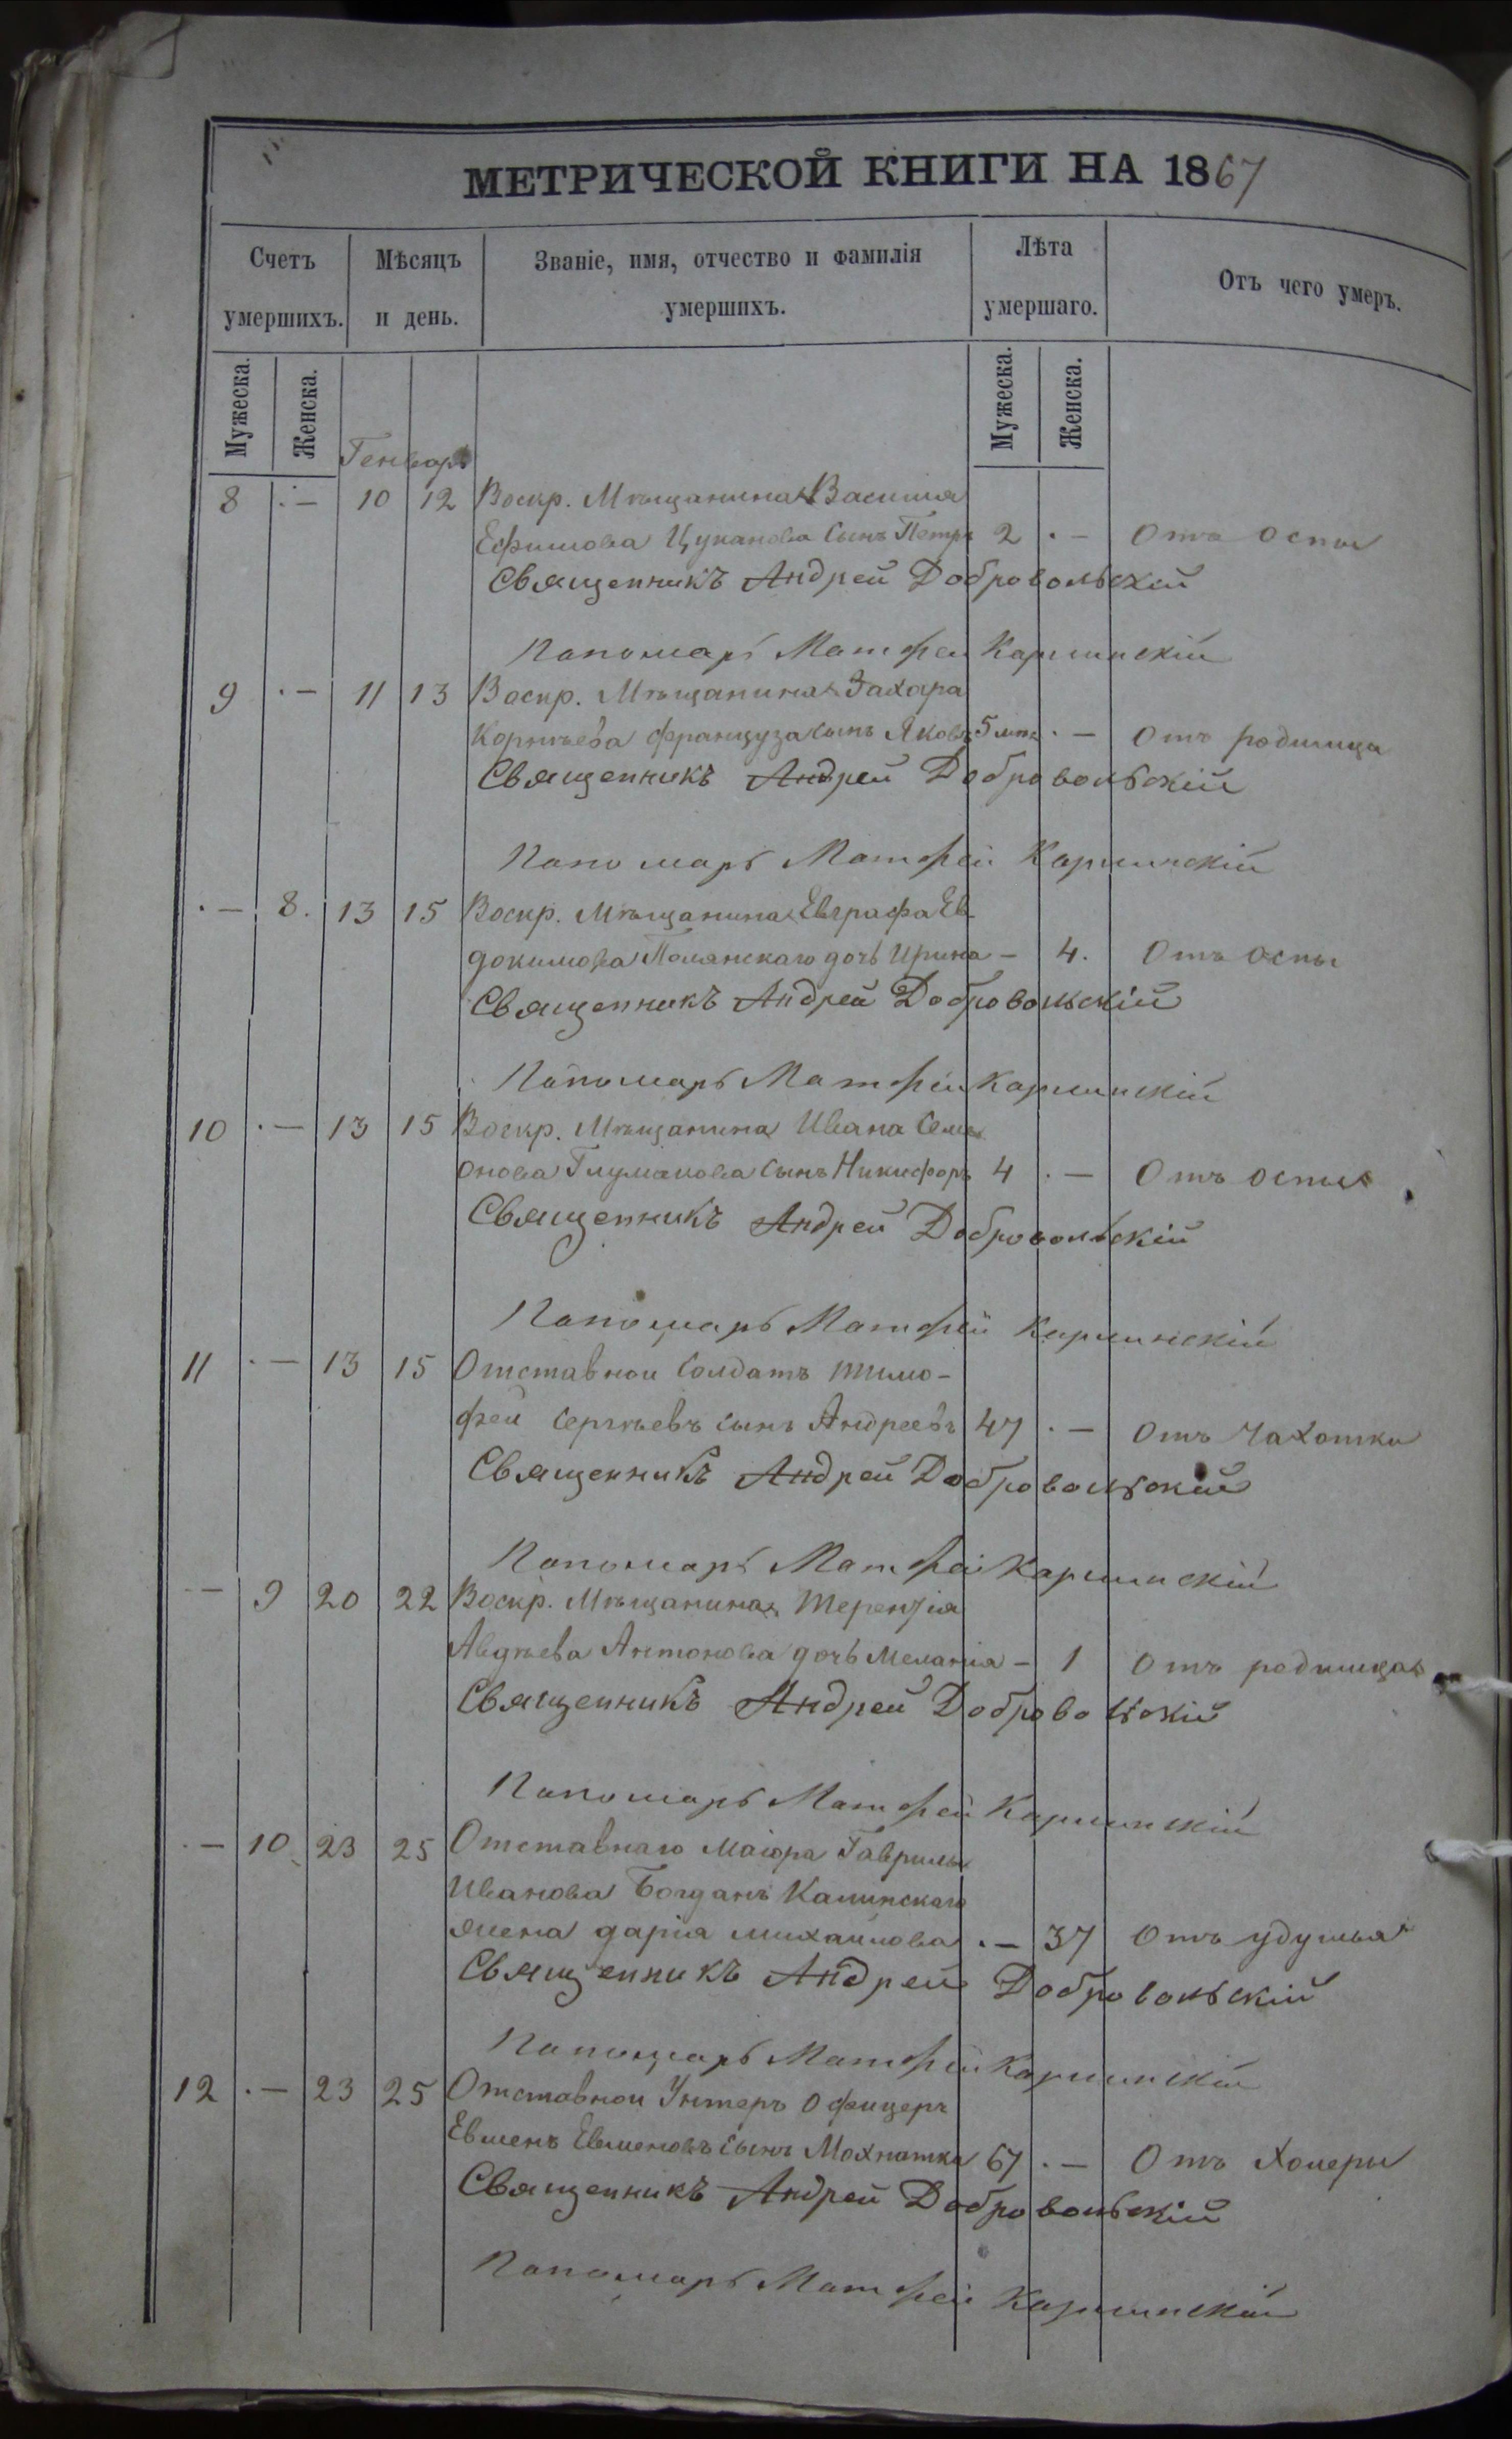 МЕТРИЧЕСКОЙ КНИГИ НА 1867
Счетъ умершихъ. Мѣсяцъ и день. Званіе, имя, отчество и фамилія умершихъ. Лѣта умершаго. Отъ чего умеръ.
Мужеска. Женска. Мужеска. Женска.
Генварь
8 ·— 10 12 Воскр. Мѣщанина Василия
Ефимова Цуканова сынъ Петръ 2 ·— Отъ оспы
Священникъ Андрей Добровольскій
Пономарь Матфей Карминскій
9 ·— 11 13 Воскр. Мѣщанина Захара
Корнѣева Француза сынъ Яковъ 5 мѣс. ·— Отъ родимца
Священникъ Андрей Добровольскій
Пономарь Матфей Карминскій
·— 8. 13 15 Воскр. Мѣщанина Евграфа Ев
докимова Полянскаго дочь Ирина — 4. Отъ оспы
Священникъ Андрей Добровольскій
Пономарь Матфей Карминскій
10 ·— 13 15 Воскр. Мѣщанина Ивана Семи
онова Глумакова сынъ Никифоръ 4 ·— Отъ оспы
Священникъ Андрей Добровольскій
Пономарь Матфей Карминскій
11 ·— 13 15 Отставной Солдатъ Тимо-
фей Сергѣевъ сынъ Андреевъ 47 ·— Отъ чахотки
Священникъ Андрей Добровольскій
Пономарь Матфей Карминскій
·— 9 20 22 Воскр. Мѣщанина Терентія
Авдѣева Антонова дочь Меланія — 1 Отъ родимца
Священникъ Андрей Добровольскій
Пономарь Матфей Карминскій
·— 10 23 25 Отставнаго Маіора Гаврилы
Иванова Богданъ Калинскаго
жена дарія михайлова ·— 37 Отъ удушья
Священникъ Андрей Добровольскій
Пономарь Матфей Карминскій
12 ·— 23 25 Отставной Унтеръ Офицеръ
Евменъ Евменовъ сынъ Мохнатка 67 ·— Отъ холеры
Священникъ Андрей Добровольскій
Пономарь Матфей Карминскій